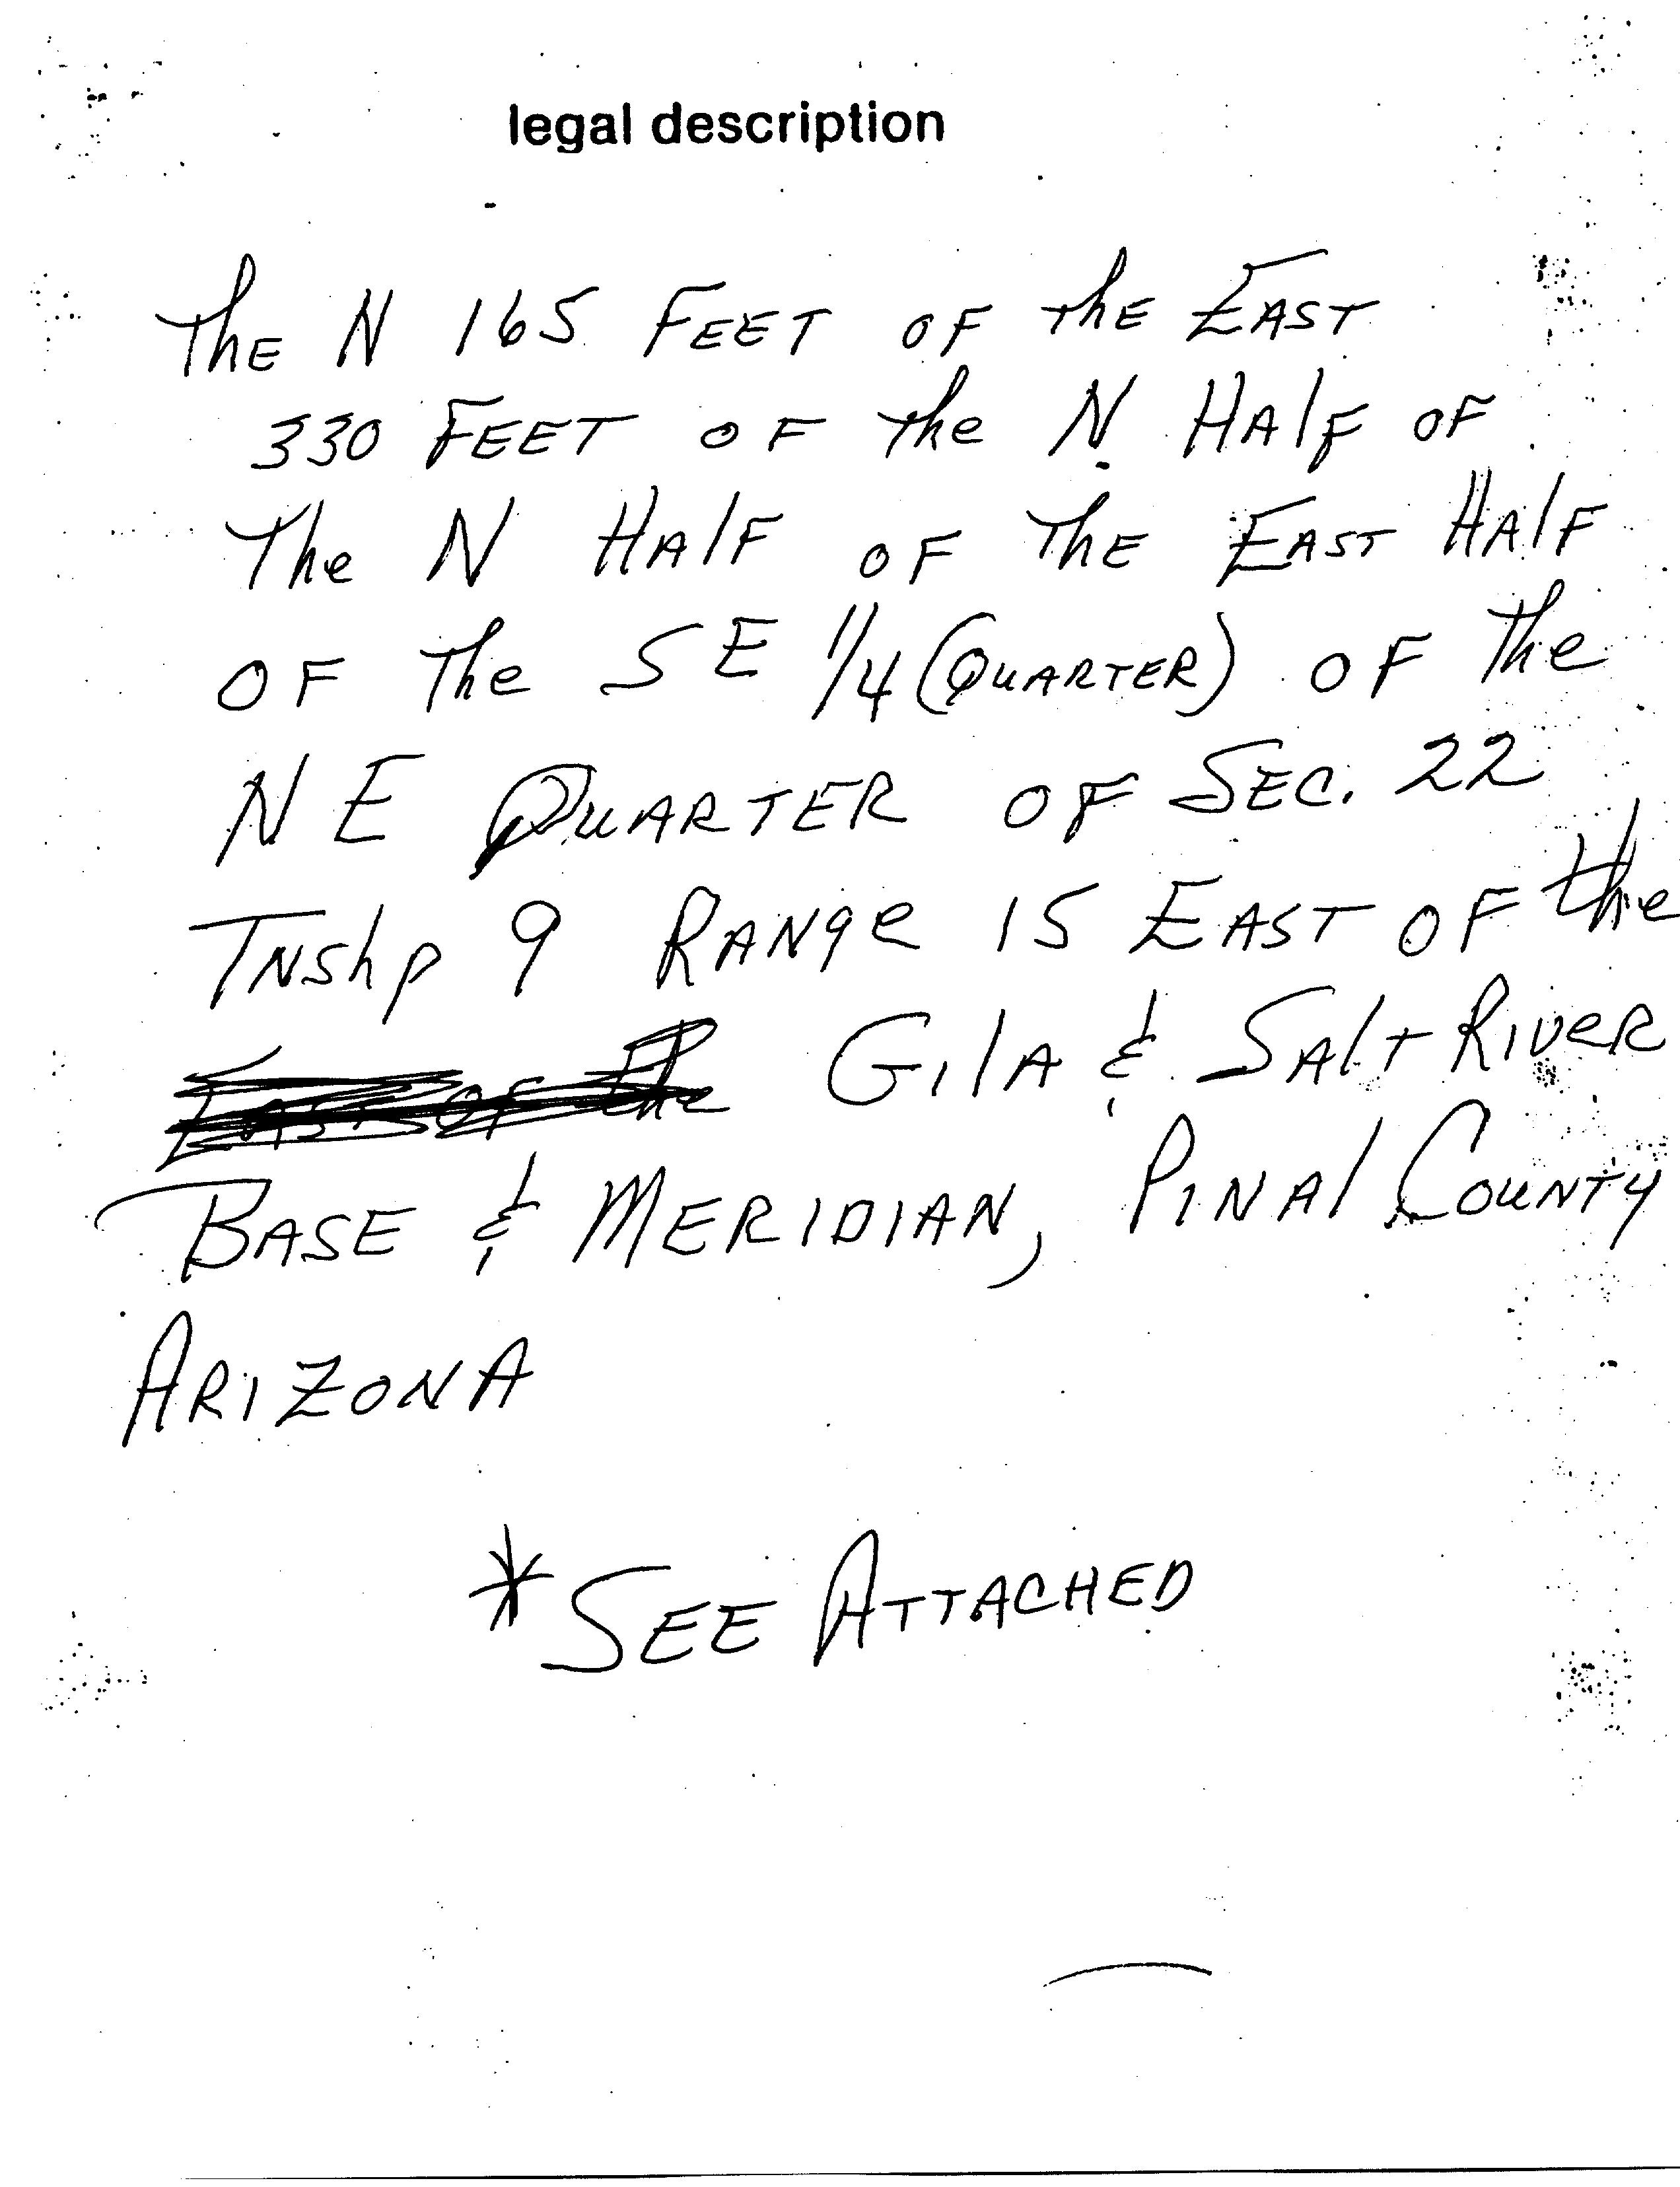 legal description
The N 165 Feet of the East
330 Feet of the N Half of
The N Half of the East Half
of the SE 1/4 (Quarter) of the
NE Quarter of Sec. 22
Tnshp 9 Range 15 East of the
East of the Gila & Salt River
Base & Meridian, Pinal County
Arizona
*See Attached